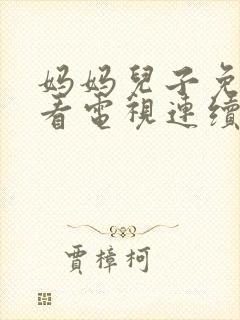 妈妈兒子免
看電視連續
賈樟柯